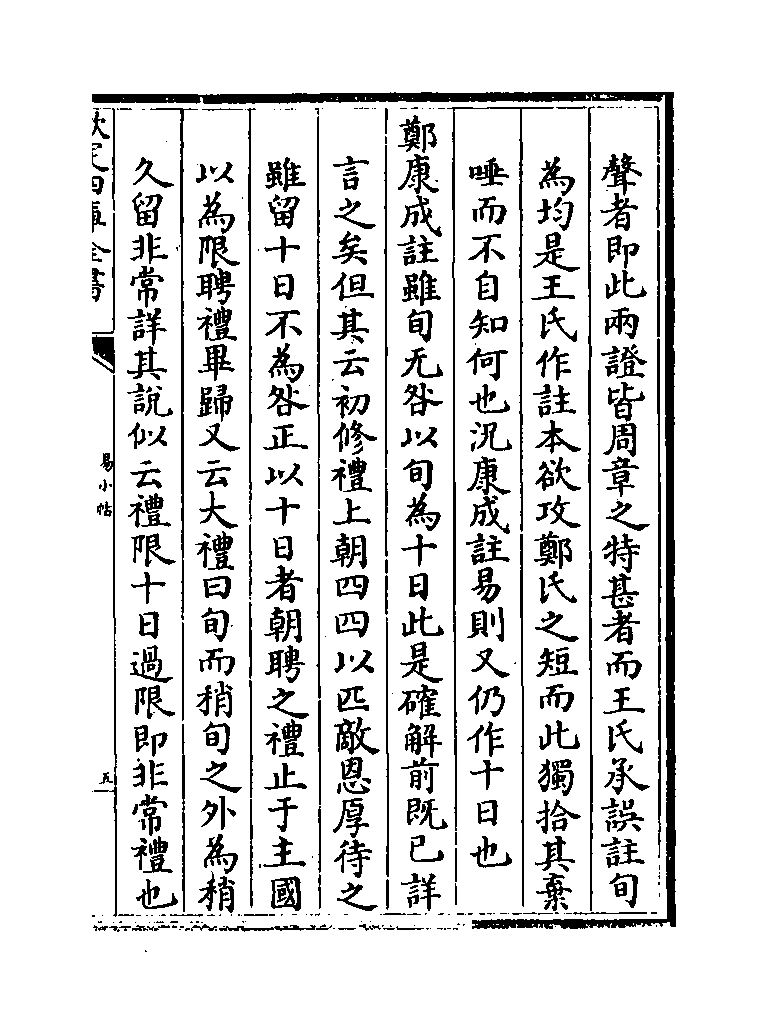 聲者即此兩證皆周章之特甚者而王氏承誤註旬
為均是王氏作註本欲攻鄭氏之短而此獨拾其棄
唾而不自知何也況康成註易則又仍作十日也
鄭康成註雖旬无咎以旬為十日此是確解前既已詳
言之矣但其云初修禮上朝四四以匹敵恩厚待之
雖留十日不為咎正以十日者朝聘之禮止于主國
以為限聘禮畢歸又云大禮曰旬而稍旬之外為稍
久留非常詳其說似云禮限十日過限即非常禮也
欽定四庫全書
易小帖
五